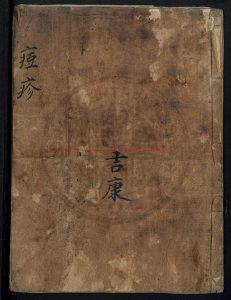 痘疹
吉康